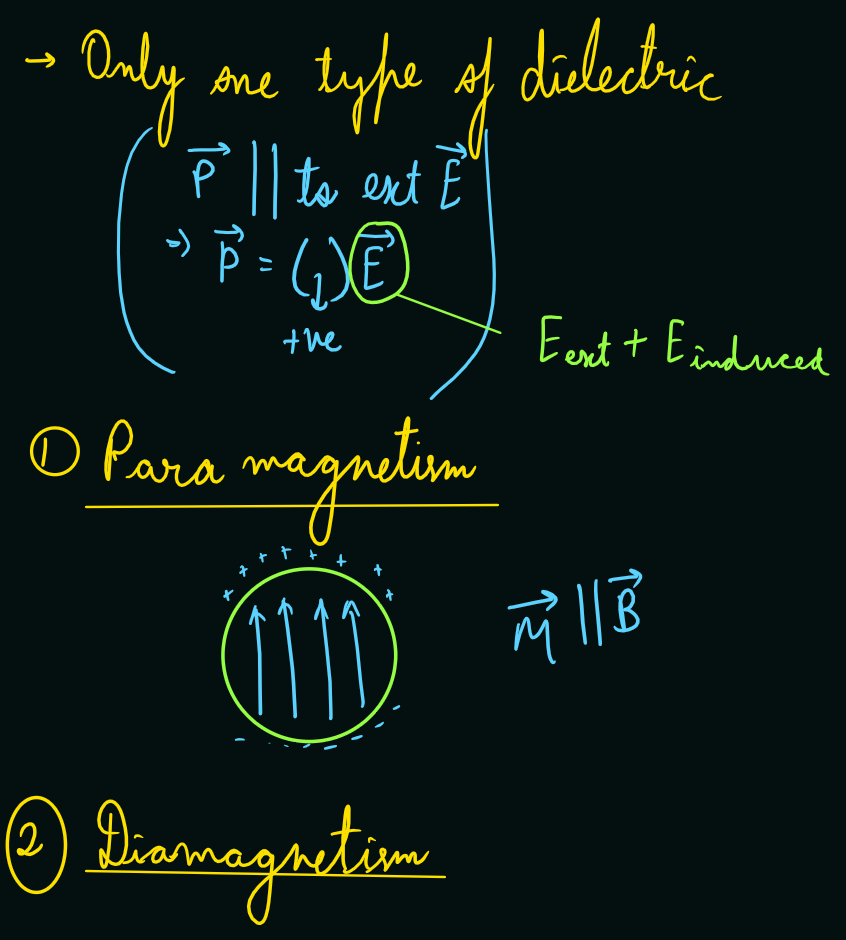 → Only one type of dielectric
P⃗ || to ext E⃗
⇒ P⃗ = (↓) E⃗
+ve
E ext + E induced
① Para magnetism
+ + + + + + + +
M⃗ || B⃗
- - - - - - - -
② Diamagnetism